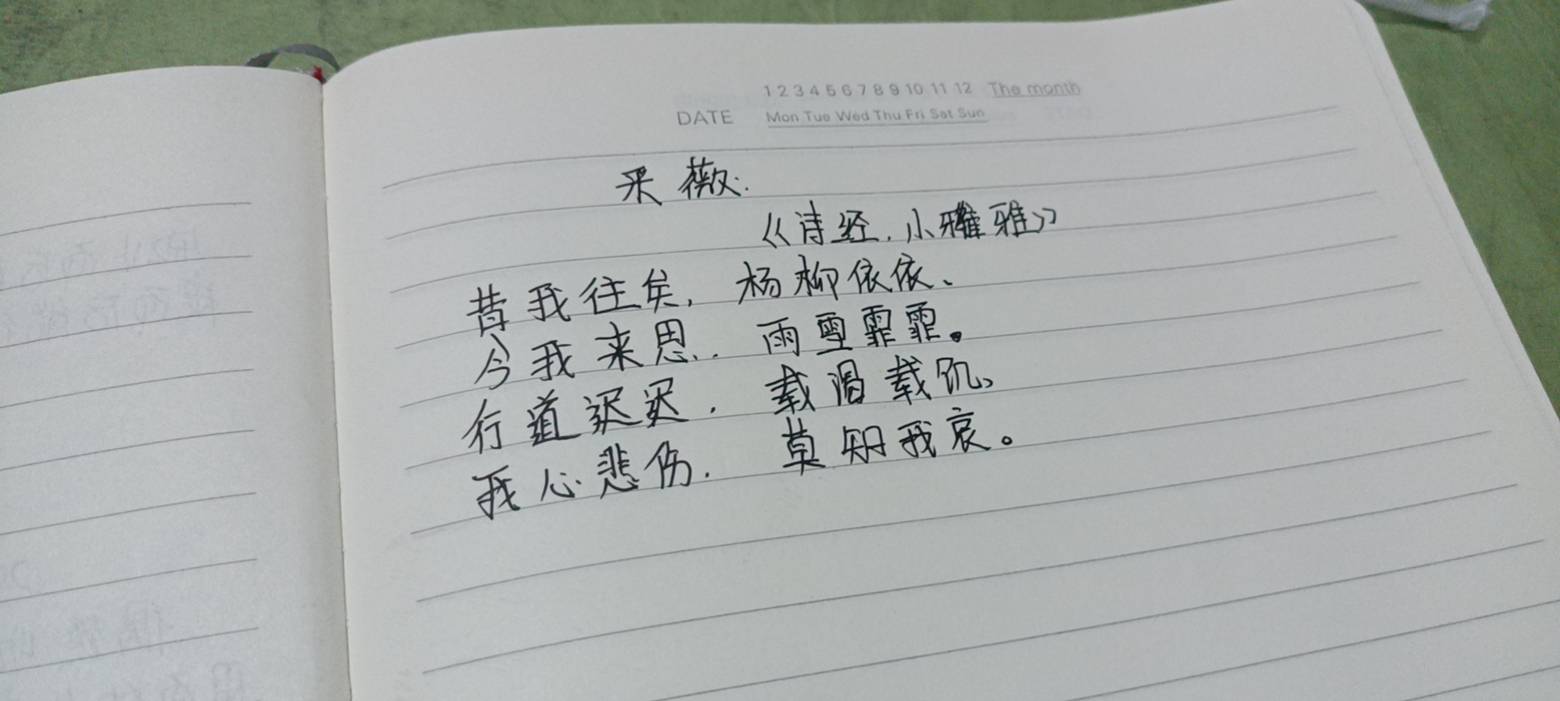 1 2 3 4 5 6 7 8 9 10 11 12 The month
DATE Mon Tue Wed Thu Fri Sat Sun
采薇.
《诗经.小雅》
昔我往矣, 杨柳依依、
今我来思.. 雨雪霏霏。
行道迟迟, 载渴载饥、
我心悲伤. 莫知我哀。